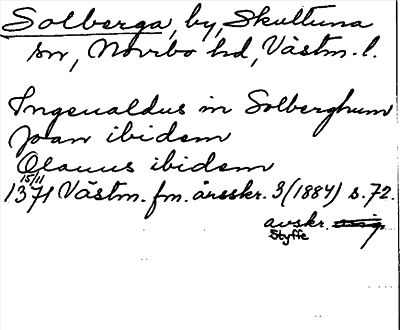 Solberga, by, Skultuna
sn, Norrbo hd, Västm. l.
Ingeualdus in Solberghum
Joan ibidem
Olauus ibidem
15/11
1371 Västm. fm. årsskr. 3 (1884) s. 72.
avskr.
Styffe